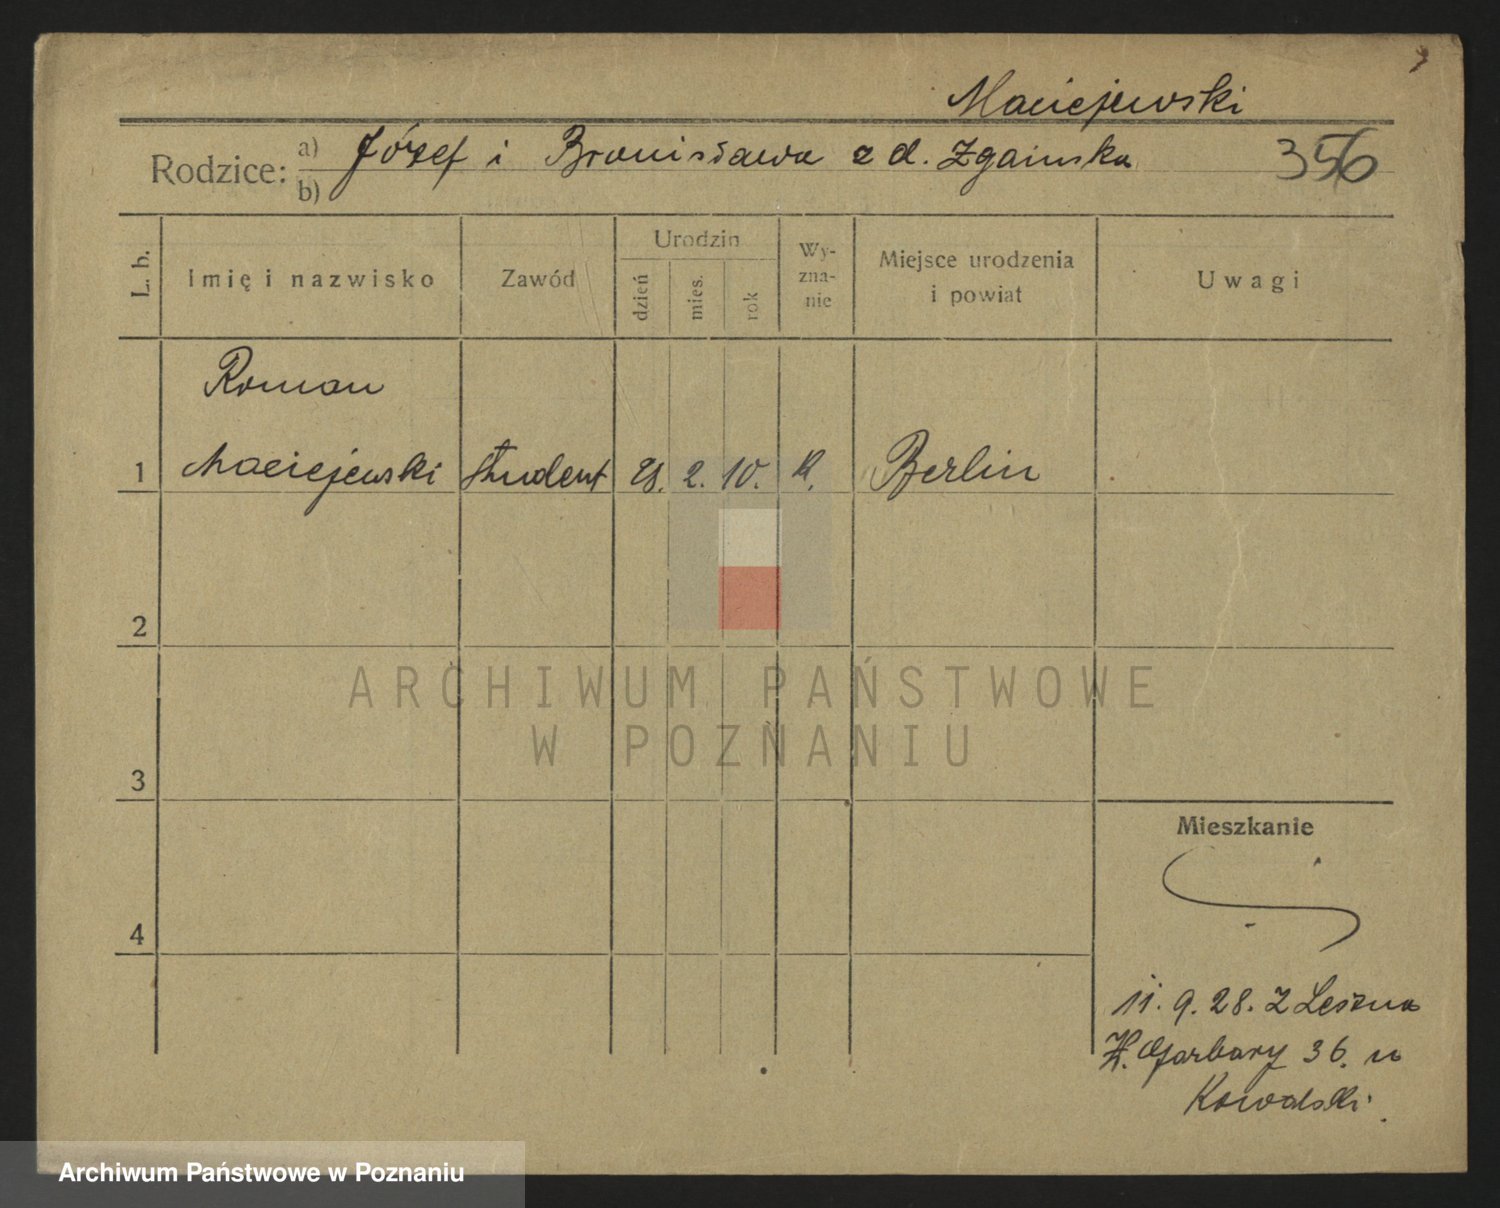 Maciejewski
Rodzice: a) Józef i Bronisława z d. Zgainska 356
b)
L. b.
Imię i nazwisko
Zawód
Urodzin
dzień
mies.
rok
Wy-
zna-
nie
Miejsce urodzenia
i powiat
Uwagi
Roman
1 Maciejewski student 28. 2. 10. K. Berlin
2
3
4
Mieszkanie
11. 9. 28. Z Leszna
Garbary 36. u
Kowalski.
ARCHIWUM PAŃSTWOWE
W POZNANIU
Archiwum Państwowe w Poznaniu